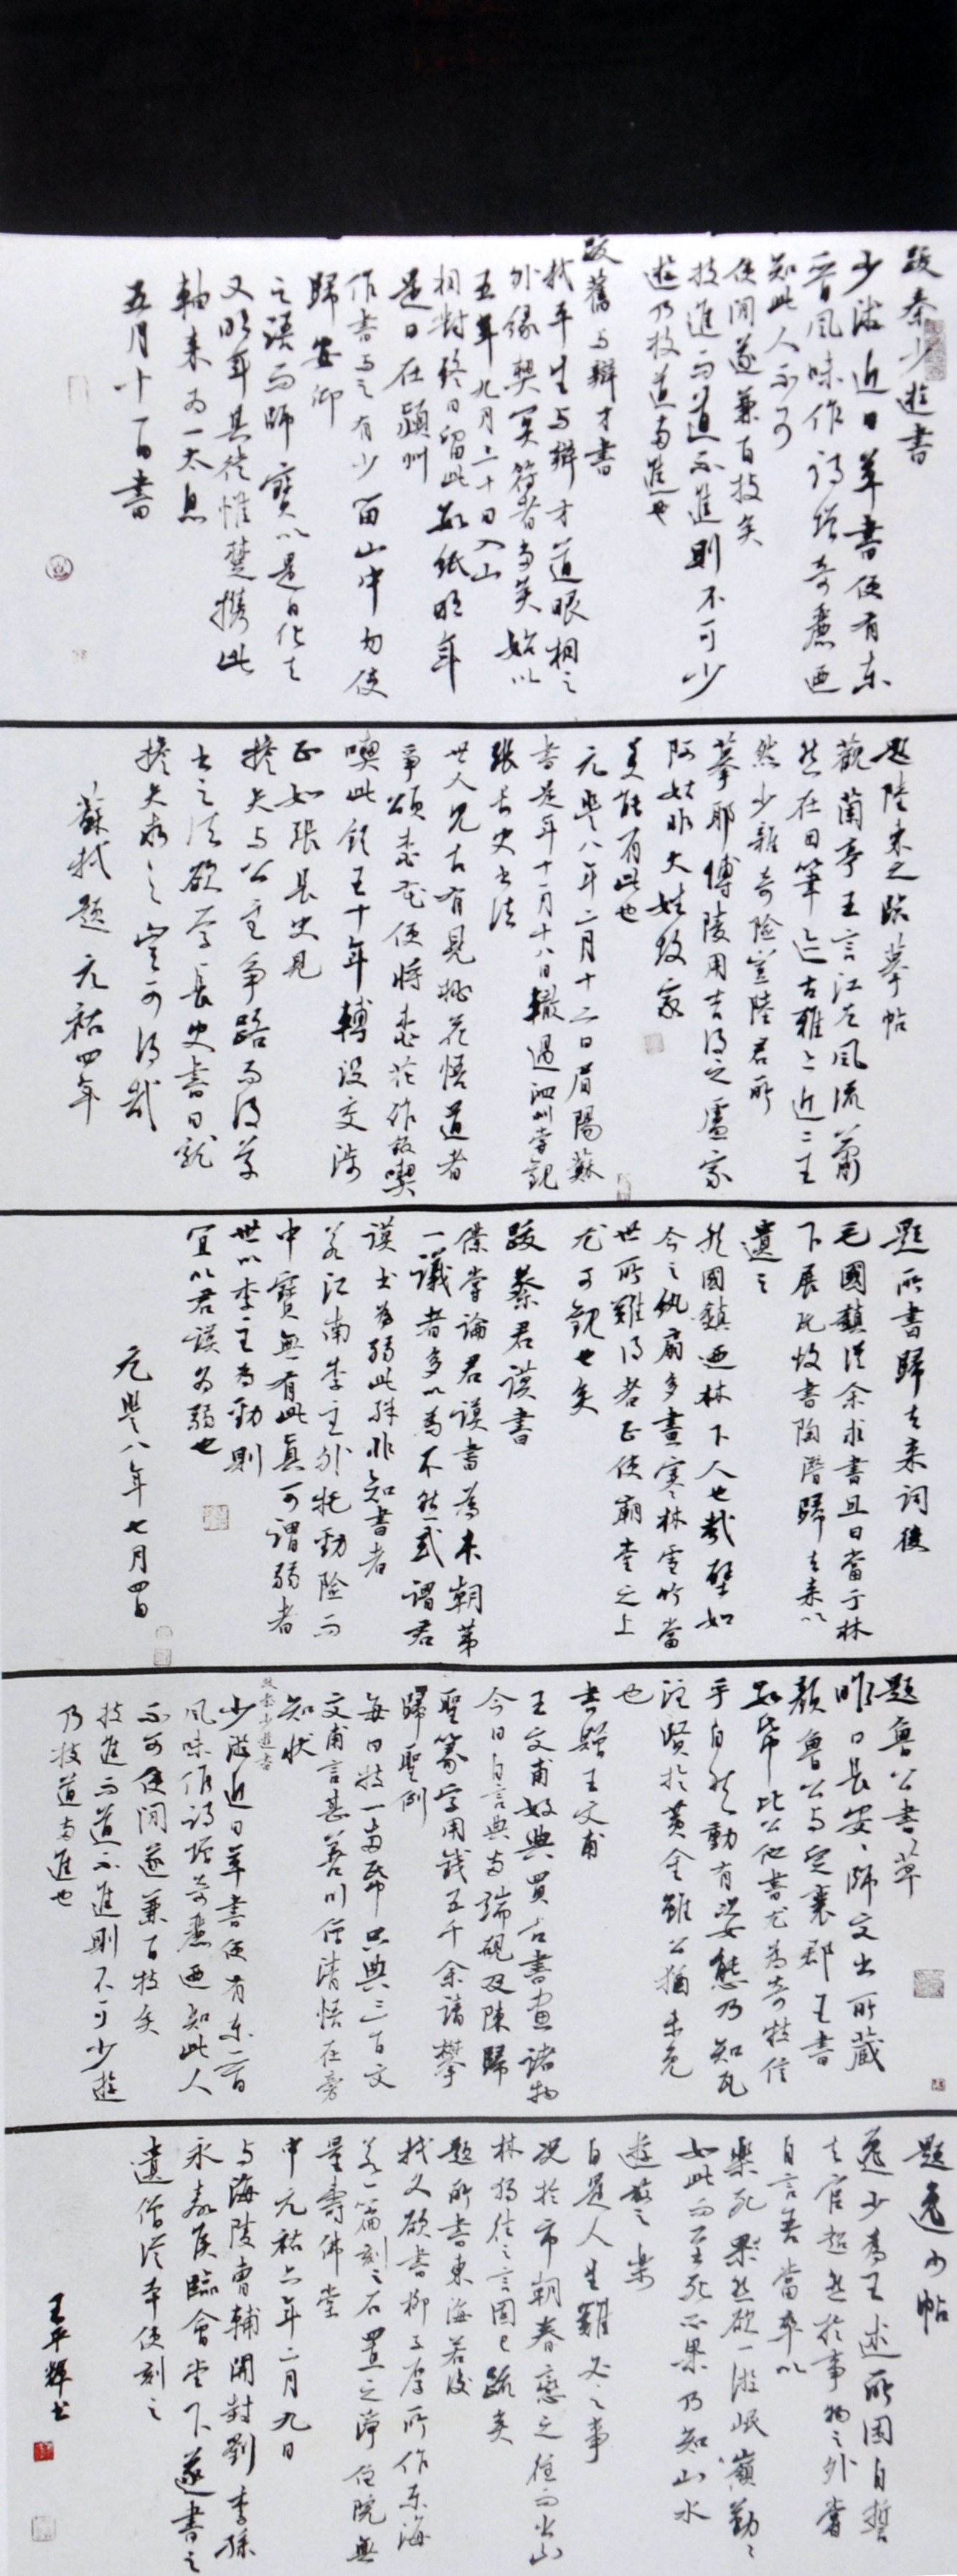 跋秦少游書
少游近日草書便有東
晉風味作詩增奇麗迺
知此人不可
使閒遂兼百技矣
技進而道不進則不可少
遊乃技道兩進也
跋舊與辯才書
軾平生與辯才道眼相之
外緣契冥符者多矣始以
五年九月二十日入山
相對終日留此數紙明年
是日在潁州
作書與之有少留山中勿使
歸安仰
之語而師寶以是日化去
又明年其徒惟楚攜此
軸來為一太息
五月十一日書
題陸柬之臨摹帖
觀蘭亭王言江左風流蕭
然在目筆跡古雅近二王
然少雜奇險豈陸君所
摹耶博陵用吉得之盧家
阿姑非大姓故家
莫能有此也
元豐八年二月十二日眉陽蘇
書是年十一月十八日轍過泗州嘗觀
張長史書法
世人見古有見桃花悟道者
爭頌桃花便將桃花作飯喫
喫此飯五十年轉沒交涉
正如張長史見
擔夫與公主爭路而得草
書之法欲學長史書日就
擔夫求之豈可得哉
蘇軾題 元祐四年
題所書歸去來詞後
毛國鎮從余求書且曰當于林
下展玩故書陶潛歸去來以
遺之
然國鎮迺林下人也哉譬如
今之紈扇多畫寒林雪竹當
世所難得者正使廟堂之上
尤可觀也矣
跋蔡君謨書
僕嘗論君謨書為本朝第
一議者多以為不然或謂君
謨書為弱此殊非知書者
若江南李主外托勁險而
中實無有此真可謂弱者
世以李主為勁則
宜以君謨為弱也
元豐八年七月四日
題魯公書草
昨日長安安師文出所藏
顏魯公與定襄郡王書
數紙比公他書尤為奇特信
手自然動有姿態乃知瓦
注賢於黃金雖公猶未免
也
書贈王文甫
王文甫好典買古書畫諸物
今日自言典兩端硯及陳歸
聖篆字用錢五千余請攀
歸聖例
每日持一兩紙只典三百文
文甫言甚善川僧清悟在旁
知狀
跋秦少游書
少游近日草書便有東晉
風味作詩增奇麗迺知此人
不可使閒遂兼百技矣
技進而道不進則不可少遊
乃技道兩進也
題逸少帖
逸少為王述所困自誓
去官超然於事物之外嘗
自言吾當卒以
樂死果然欲一游岷嶺勤勤
如此而至死不果乃知山水
遊放之樂
自是人生難必之事
況於市朝眷戀之徒而出山
林獨往之言固已疏矣
題所書東海若後
軾久欲書柳子厚所作東海
若一篇刻之石置之淨住院無
量壽佛堂
中元祐六年二月九日
與海陵曹輔開封劉季孫
永嘉侯臨會堂下遂書之
遺僧從本使刻之
王平輝書